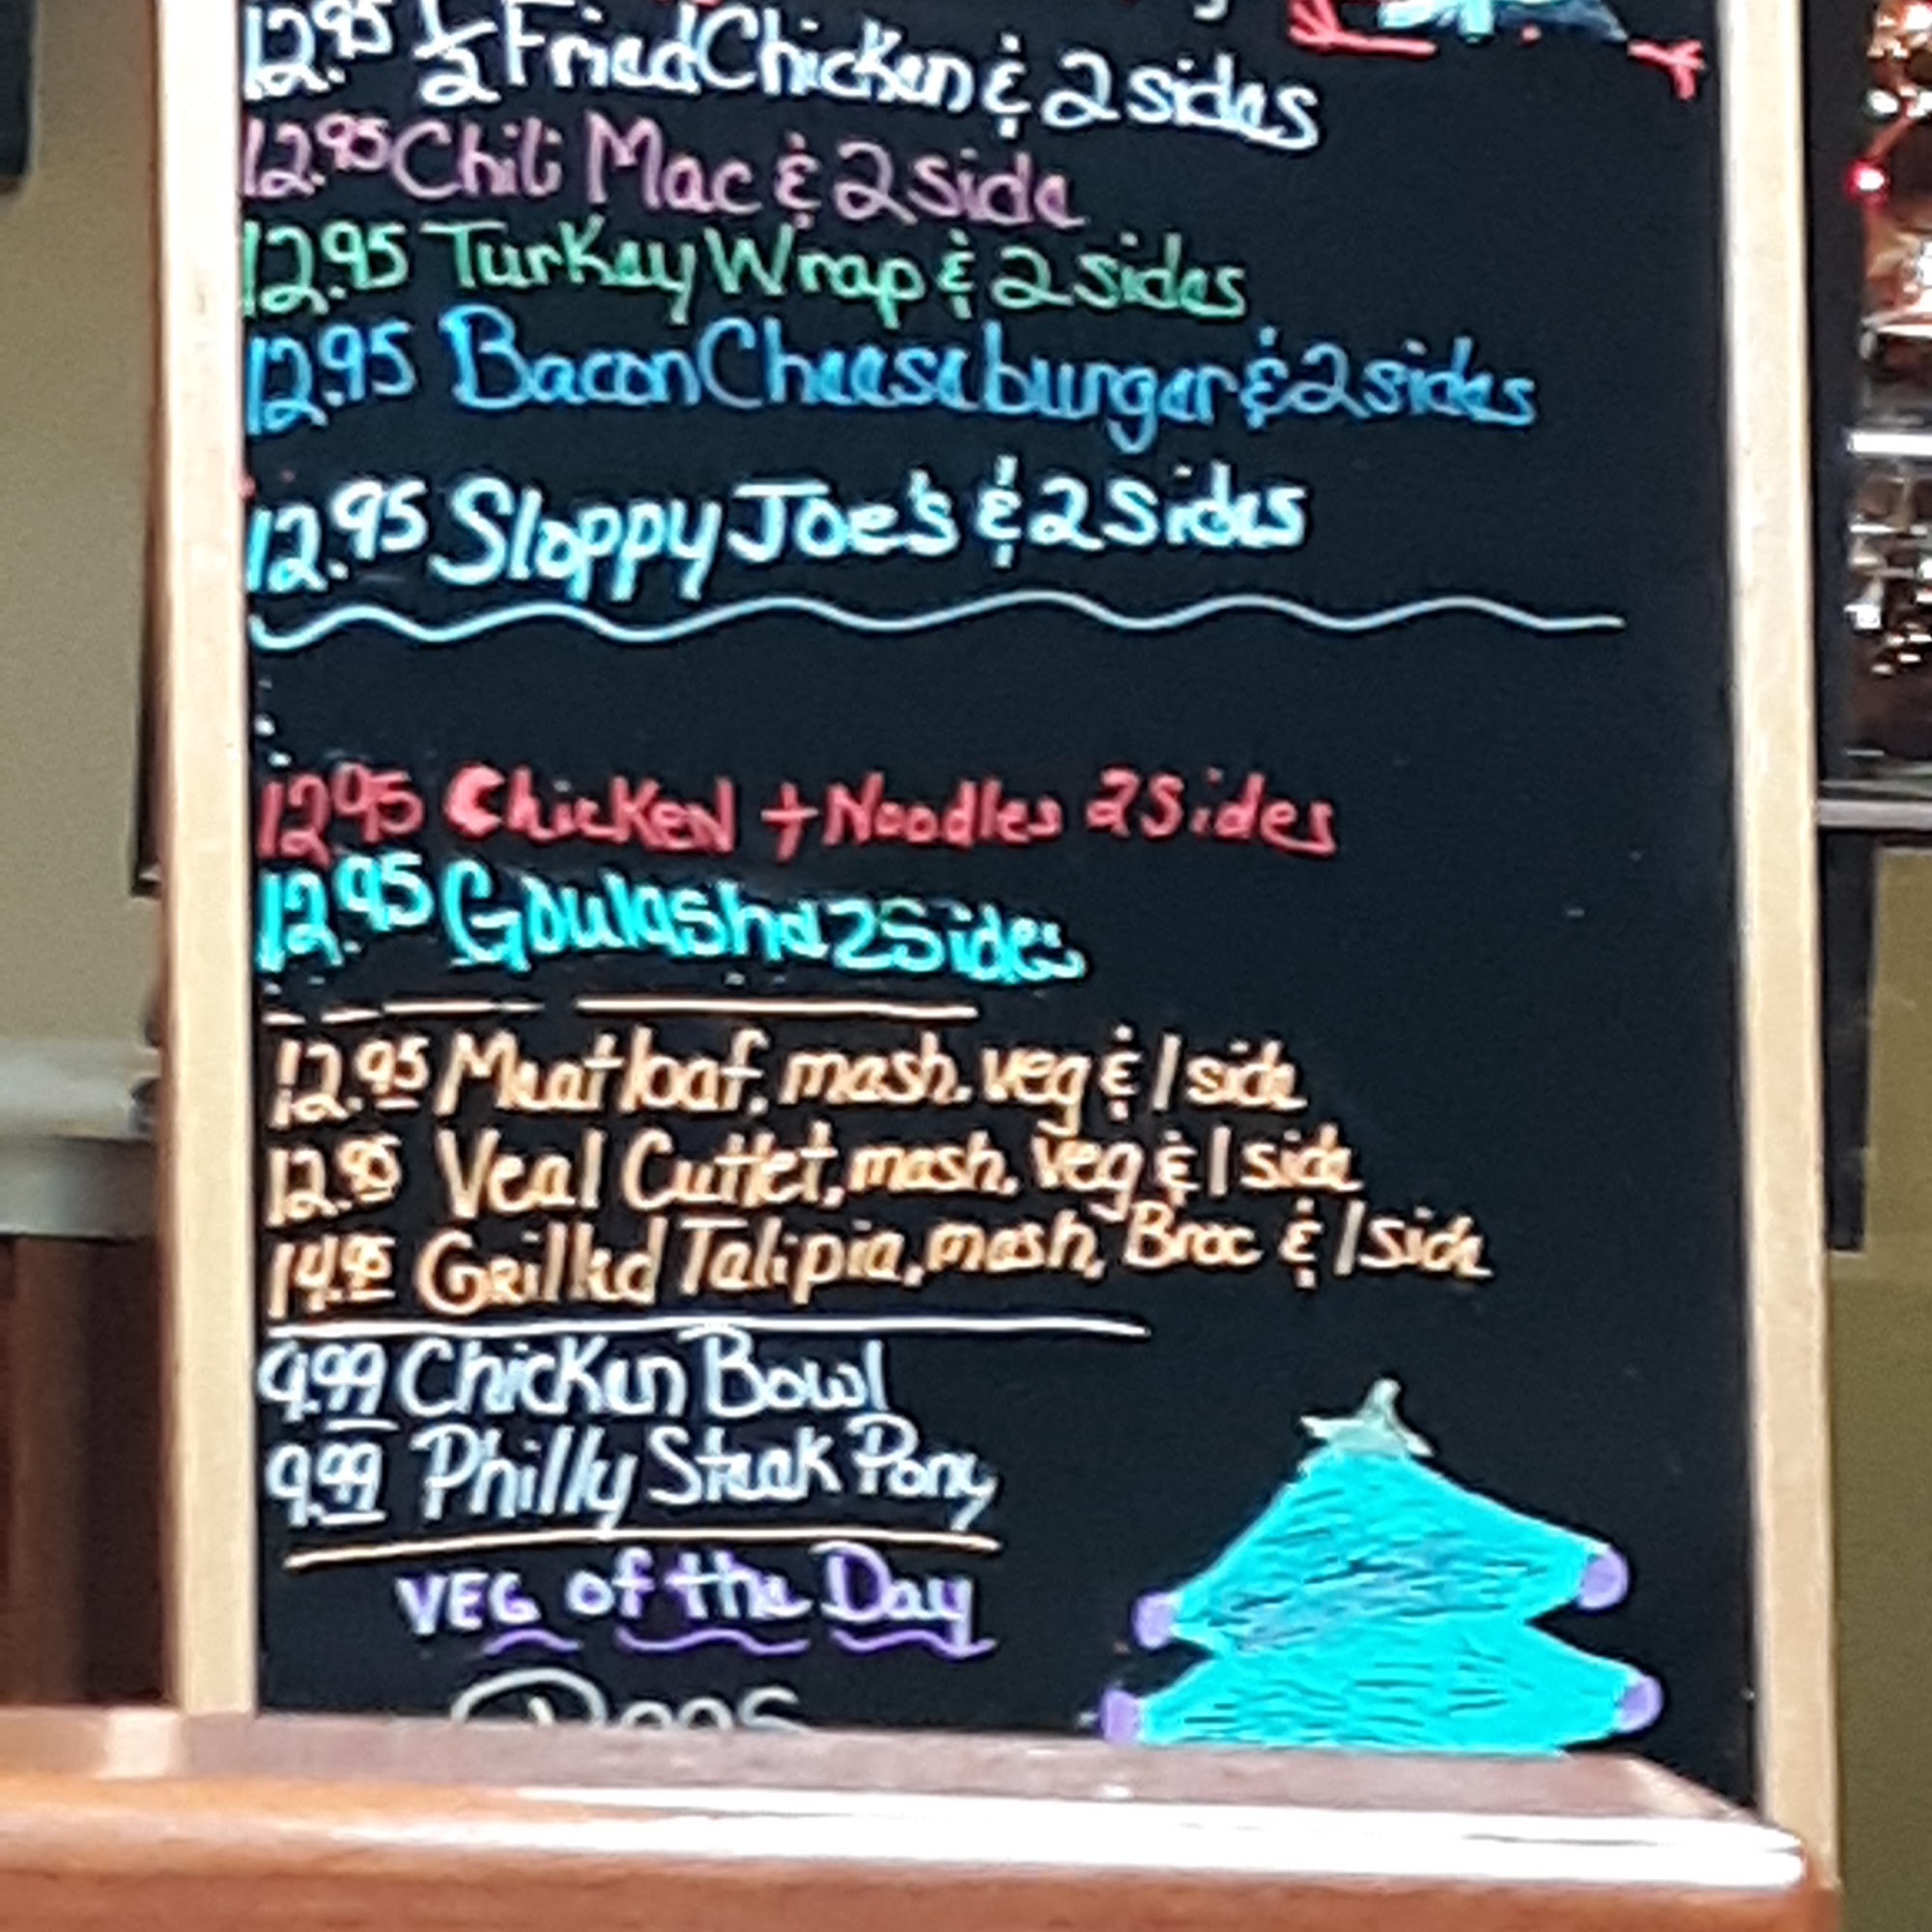 12.95 1/2 Fried Chicken & 2 sides
12.95 Chili Mac & 2 side
12.95 Turkey Wrap & 2 sides
12.95 Bacon Cheeseburger & 2 sides
12.95 Sloppy Joe's & 2 Sides
12.95 Chicken + Noodles 2 Sides
12.95 Goulash 2 Sides
12.95 Meatloaf, mash, veg & 1 side
12.95 Veal Cutlet, mash, veg & 1 side
14.95 Grilled Talipia, mash, Broc & 1 side
9.99 Chicken Bowl
9.99 Philly Steak Pony
VEG of the Day